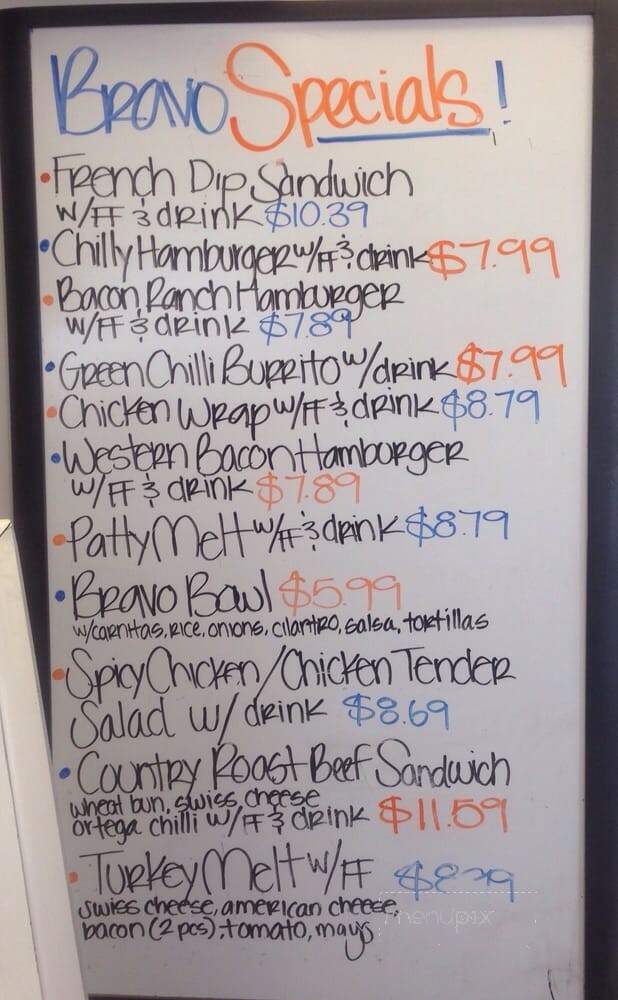 Bravo Specials!
• French Dip Sandwich
w/FF & drink $10.39
• Chilly Hamburger w/FF & drink $7.99
• Bacon Ranch Hamburger
w/FF & drink $7.89
• Green Chilli Burrito w/drink $7.99
• Chicken Wrap w/FF & drink $8.79
• Western Bacon Hamburger
w/FF & drink $7.89
• Patty Melt w/FF & drink $8.79
• Bravo Bowl $5.99
w/carnitas, rice, onions, cilantro, salsa, tortillas
• Spicy Chicken/Chicken Tender
Salad w/ drink $8.69
• Country Roast Beef Sandwich
wheat bun, swiss, cheese
ortega chilli w/FF & drink $11.59
• Turkey Melt w/FF
swiss cheese, american cheese,
bacon (2 pcs), tomato, mayo
menupix